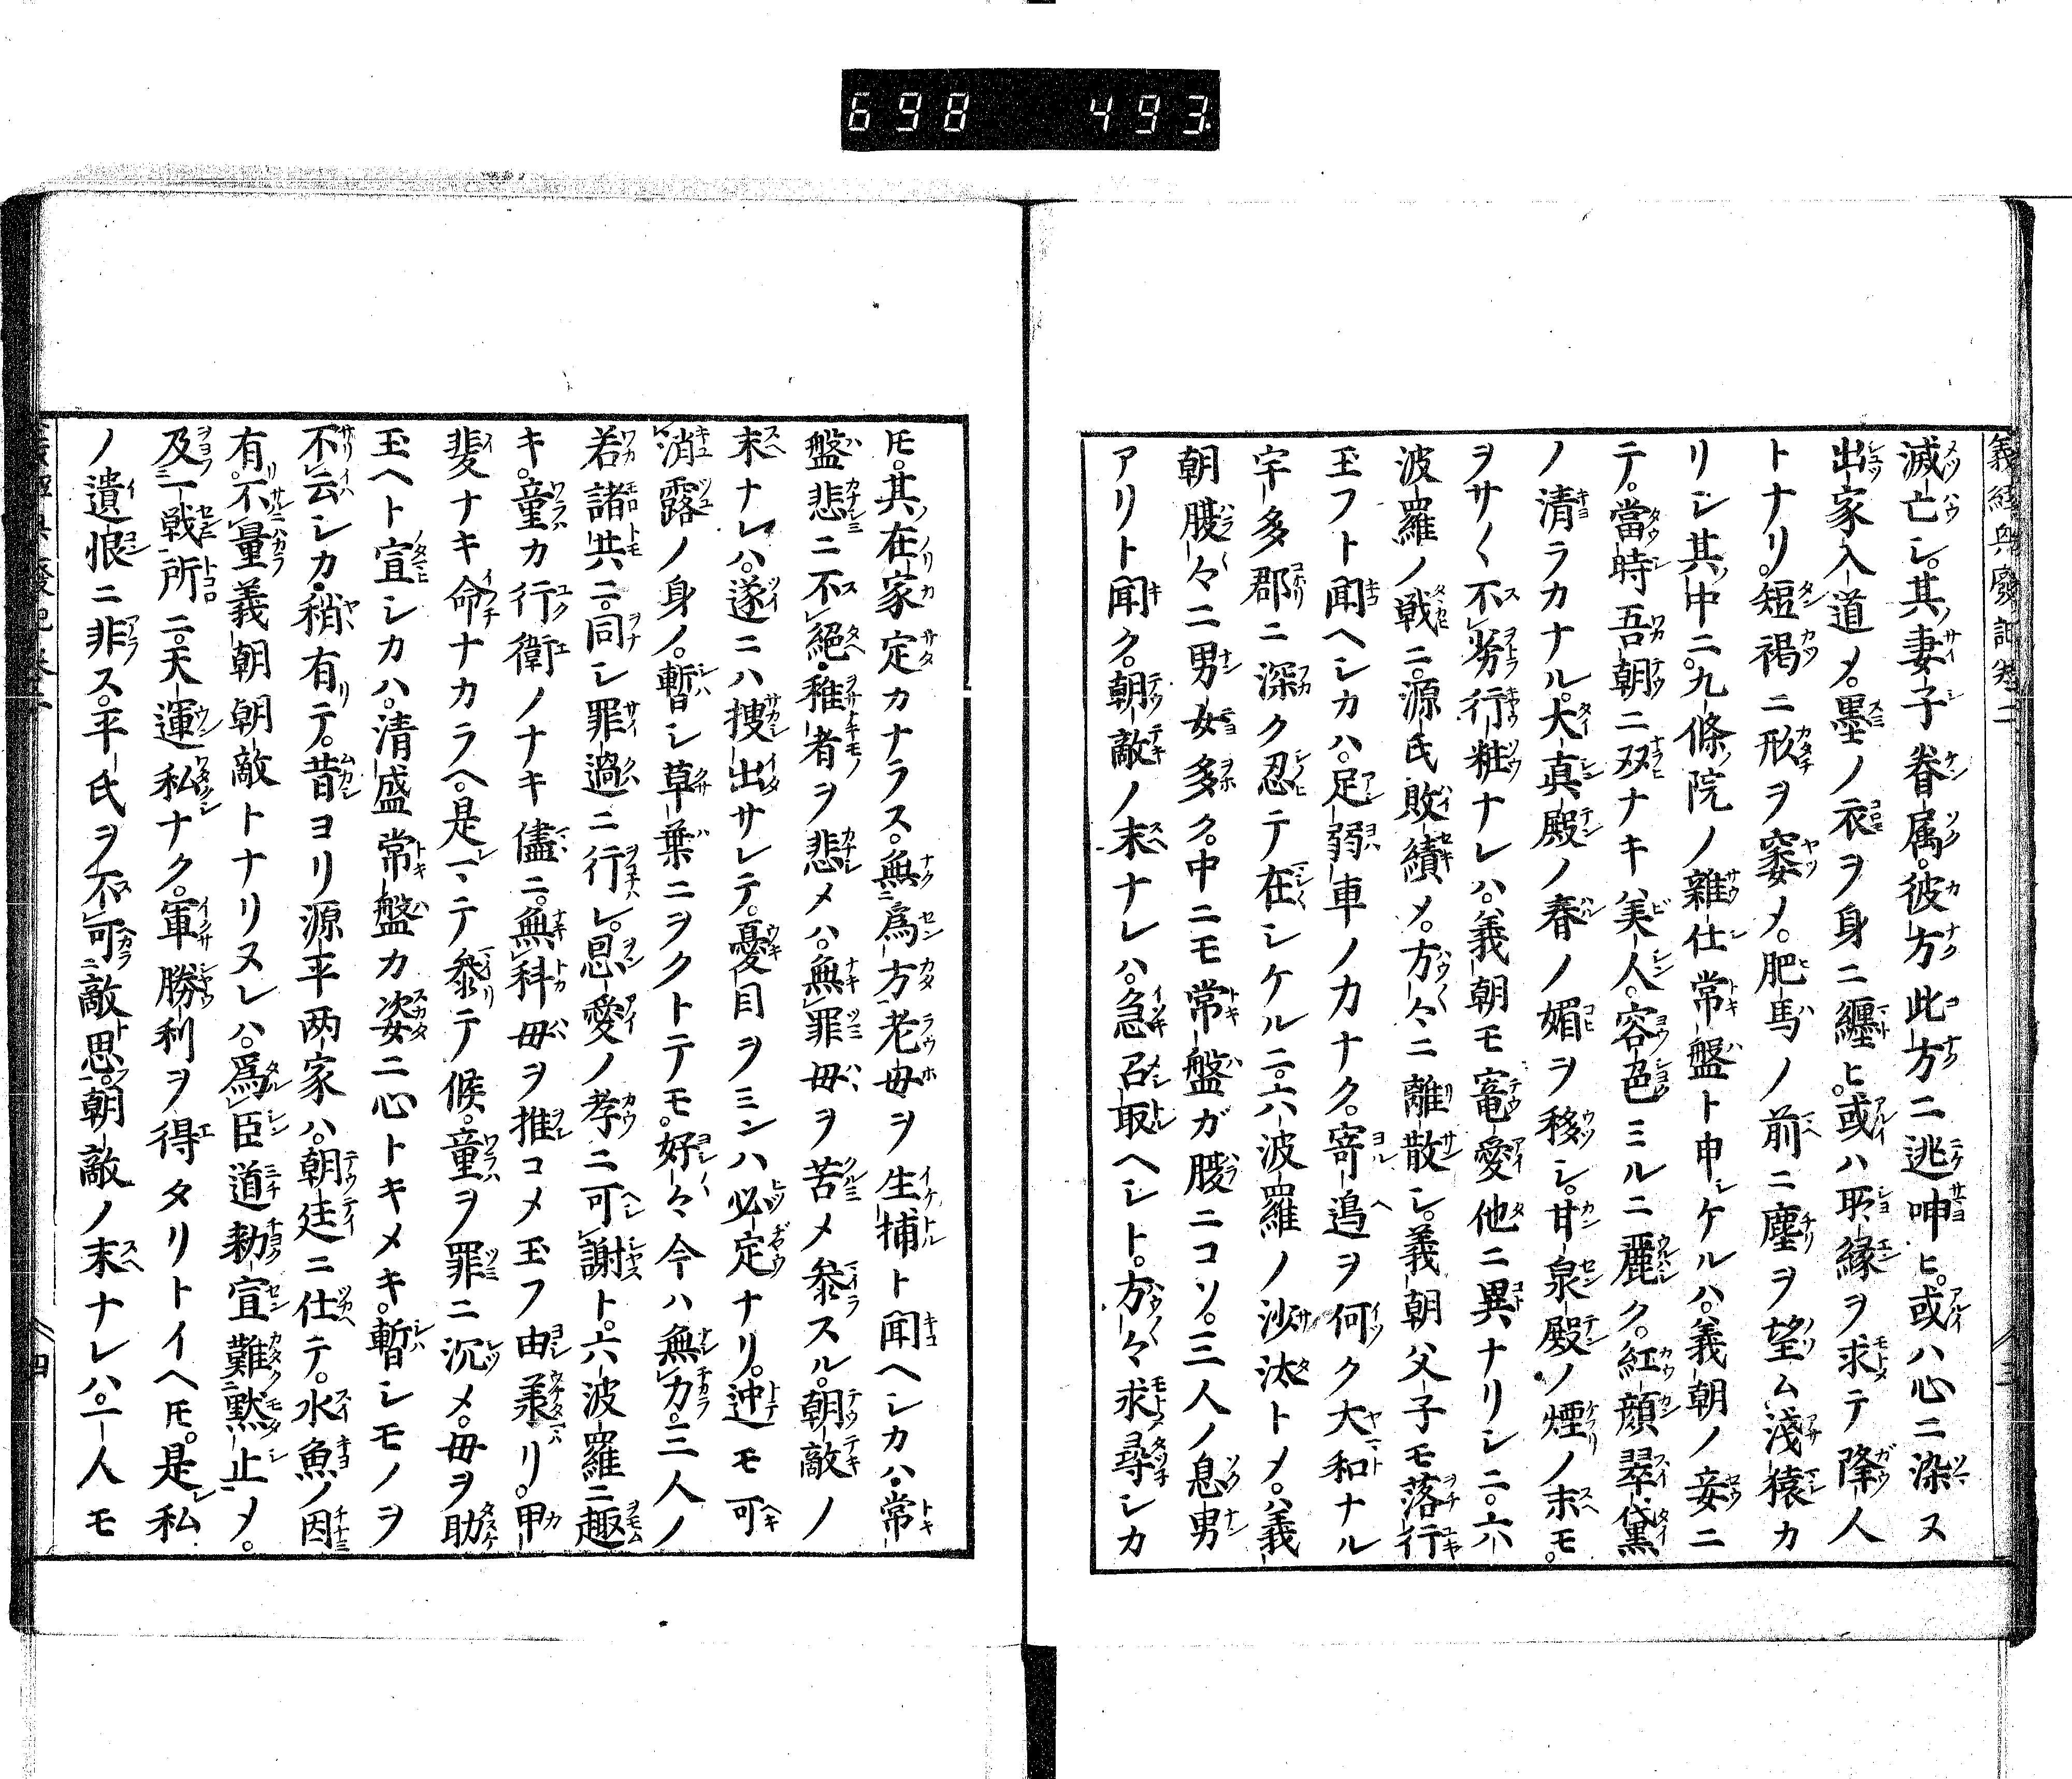 698 493
義經興廢記卷二
滅亡シ。其妻子眷属。彼方此方ニ逃呻ヒ。或ハ心ニ染ス
出家入道メ。墨ノ衣ヲ身ニ纏ヒ。或ハ所縁ヲ求テ降人
トナリ。短褐ニ形ヲ窶メ。肥馬ノ前ニ塵ヲ望ム淺猿カ
リシ其中ニ。九條ノ院ノ雜仕常盤ト申シケルハ。義朝ノ妾ニ
テ。當時吾朝ニ双ナキ美人。容色ミルニ麗ク。紅顔翠黛
ノ清ラカナル。大真殿ノ春ノ媚ヲ移シ。甘泉殿ノ煙ノ末モ。
ヲサ〱不劣行粧ナレハ。義朝モ寵愛他ニ異ナリシニ。六
波羅ノ戦ニ。源氏敗績メ。方々ニ離散シ。義朝父子モ落行
玉フト聞ヘシカハ。足弱車ノカナク。寄邉ヲ何ク大和ナル
宇多郡ニ深ク忍テ在シケルニ。六波羅ノ沙汰トメ。義
朝腹々ニ男女多ク。中ニモ常盤ガ腹ニコソ。三人ノ息男
アリト聞ク。朝敵ノ末ナレハ。急召取ヘシト。方々求尋シカ
三
𪜈。其在家定カナラス。無為方老母ヲ生捕ト聞ヘシカハ。常
盤悲ニ不絕。稚者ヲ悲メハ。無罪母ヲ苦メ参スル。朝敵ノ
末ナレハ。遂ニハ捜出サレテ。憂目ヲミンハ必定ナリ。迚モ可
消露ノ身ノ。暫シ草葉ニヲクトテモ。好々今ハ無力。三人ノ
若諸共ニ。同シ罪過ニ行レ。恩愛ノ孝ニ可謝ト。六波羅ニ趣
キ。童カ行衛ノナキ儘ニ。無科母ヲ推コメ玉フ由羕リ。甲
斐ナキ命ナカラヘ。是マテ参テ候。童ヲ罪ニ沉メ。母ヲ助
玉ヘト宣シカハ。清盛常盤カ姿ニ心トキメキ。暫シモノヲ
不云シカ。稍有テ。昔ヨリ源平両家ハ。朝廷ニ仕テ。水魚ノ因
有。不量義朝朝敵トナリヌレハ。爲臣道勅宣難黙止メ。
及一戦所ニ。天運私ナク。軍勝利ヲ得タリトイヘ𪜈。是私
ノ遺恨ニ非ス。平氏ヲ不可敵思。朝敵ノ末ナレハ。一人モ
四